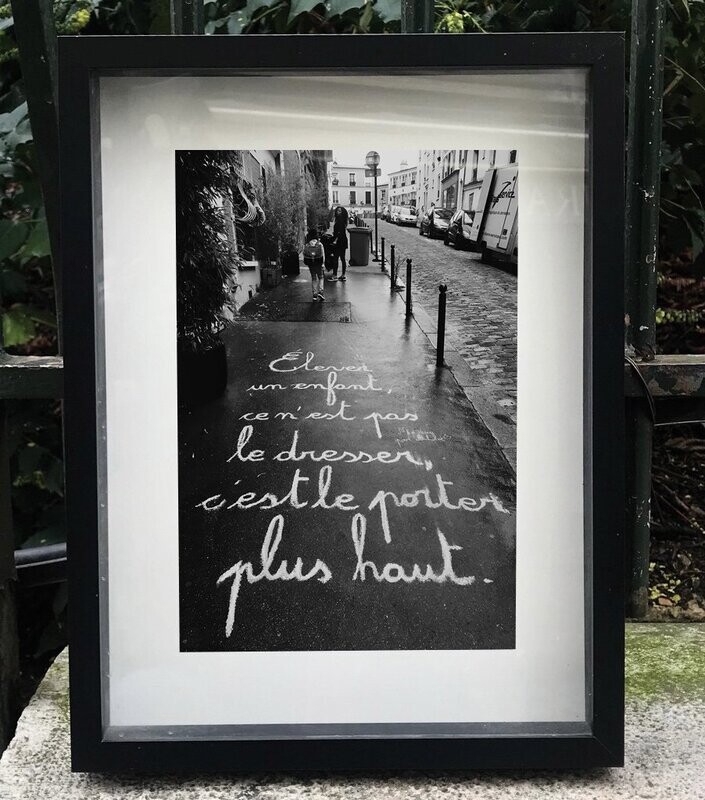 Élever
un enfant,
ce n'est pas
le dresser,
c'est le porter
plus haut.